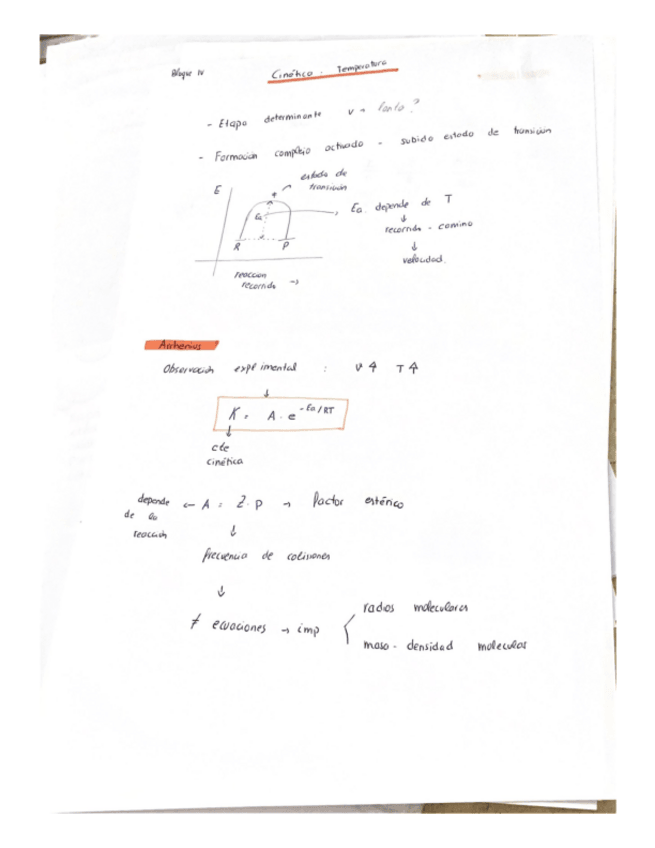 Bloque IV
Cinética. Temperatura
- Etapa determinante v → lenta?
- Formación complejo activado - subida estado de transición
estado de
transición
E
Ea
R P
reacción
recorrido →
Ea. depende de T
↓
recorrido - camino
↓
velocidad.
Arrhenius?
Observación experimental : v ↑ T ↑
↓
K = A · e^-Ea/RT
↓
cte
cinética
depende ← A = Z · P → factor estérico
de la
reacción
↓
frecuencia de colisiones
↓
≠ ecuaciones → imp
radios moleculares
masa - densidad moleculas